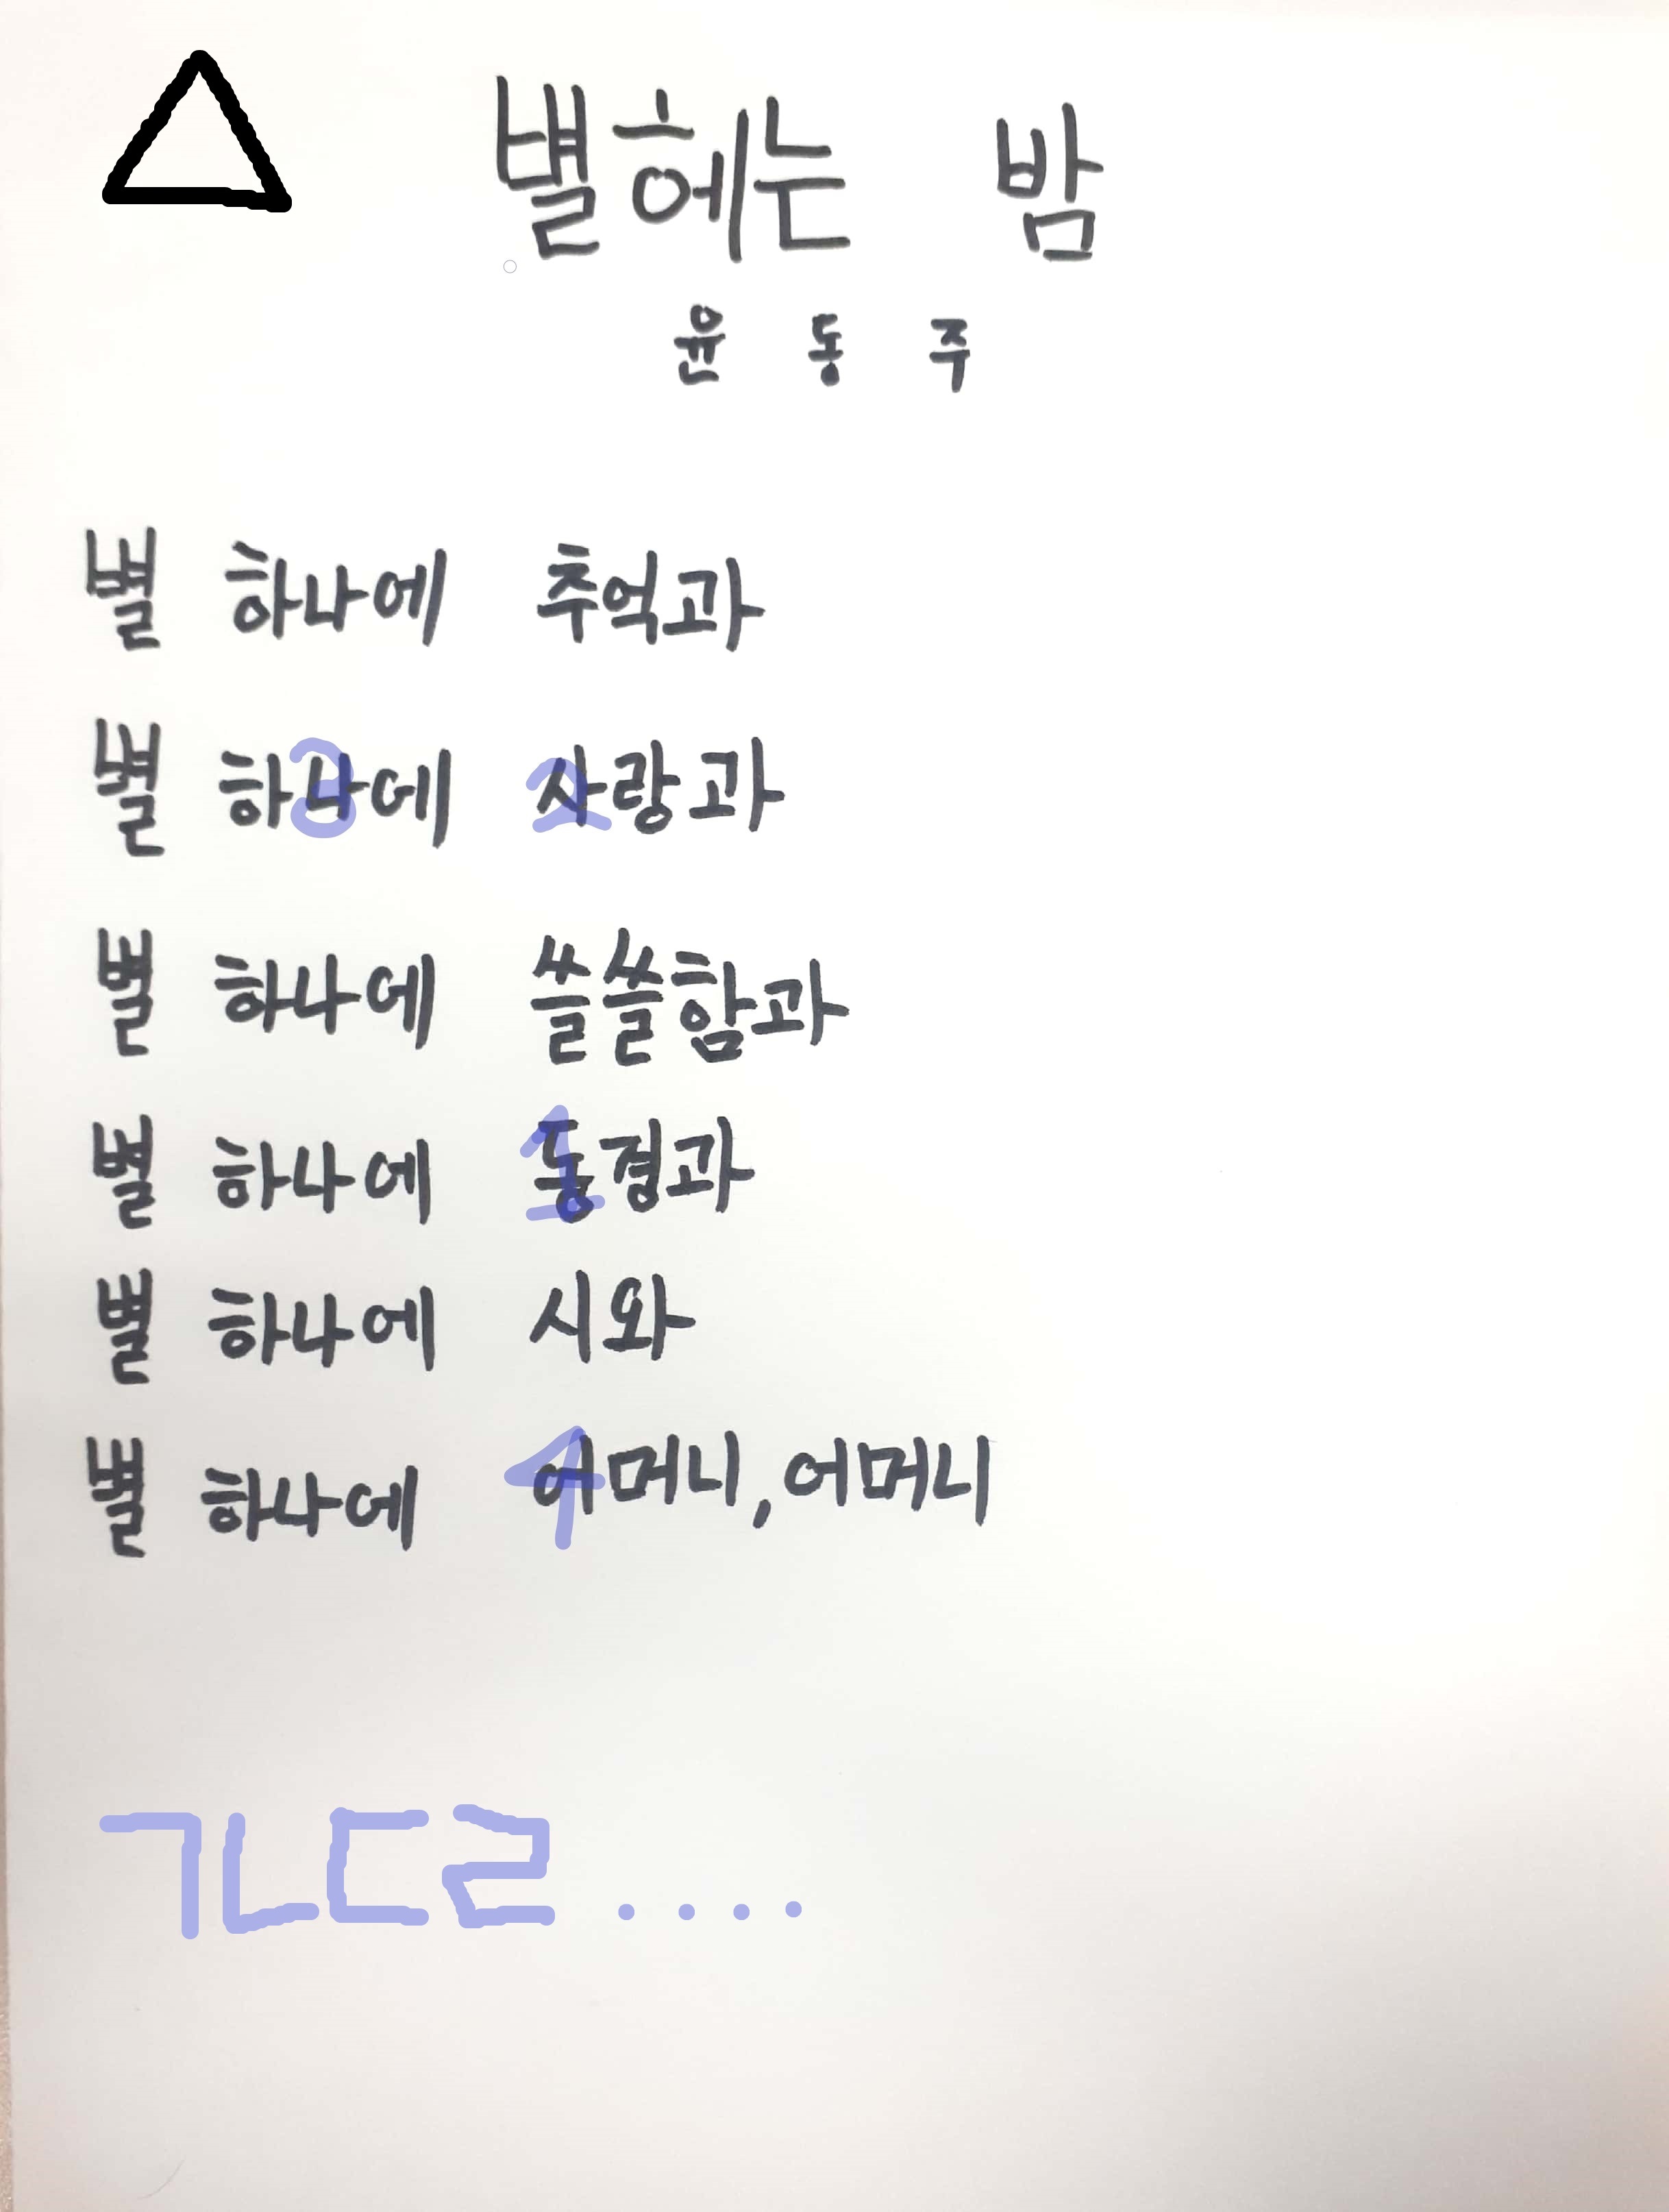 별 헤는 밤
윤 동 주
별 하나에 추억과
별 하나에 사랑과
별 하나에 쓸쓸함과
별 하나에 동경과
별 하나에 시와
별 하나에 어머니, 어머니
3 2
1
4
ㄱㄴㄷㄹ....